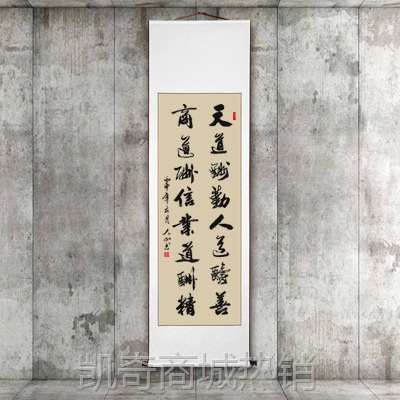 天道酬勤人道醻善
商道酬信業道酬精
凯奇商城热销